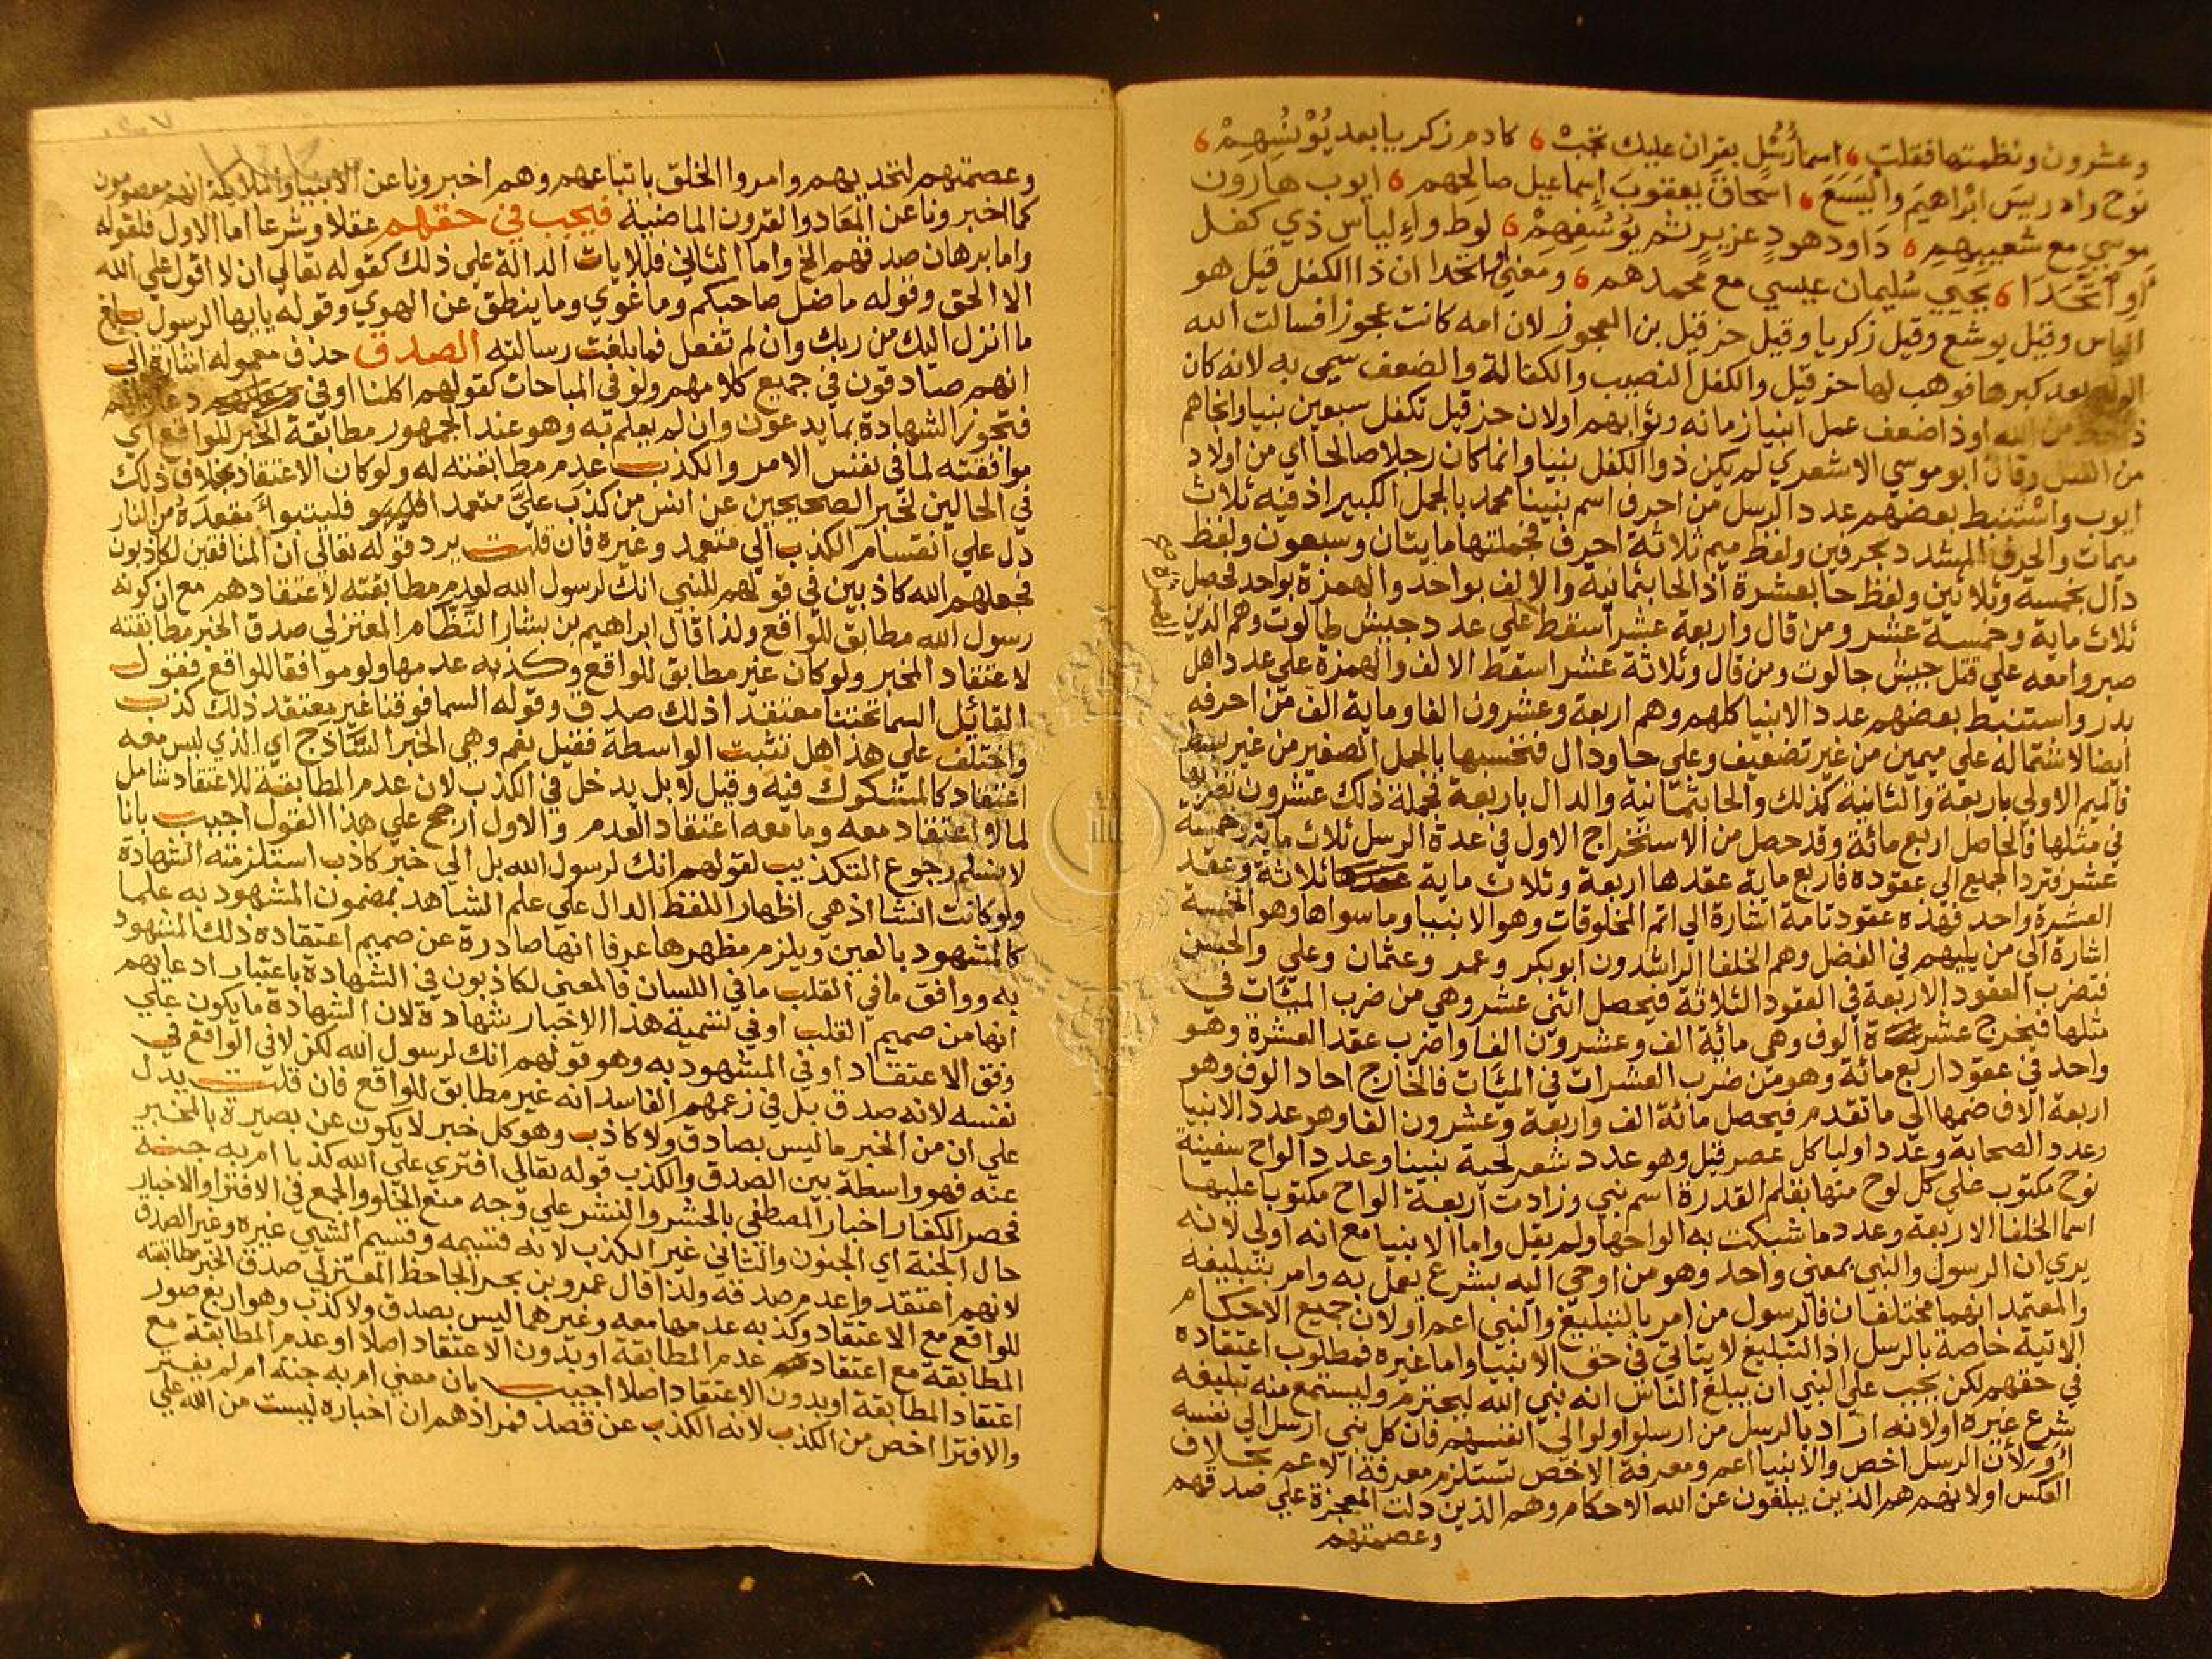 وعشرون ونظمتها فقلت اسما رُسْل بقران عليك تجبْ كادم زكريا بعد يُوْنُسِهِمْ
نوح وادريسَ ابْراهيمَ واْليَسَعَ اسحاقَ يعقوبَ إسماعيل صالحِهم ايوب هارون
موسي مع شعيبِهِم دَاود هودٍ عزيرٍ ثم يُوْسُفِهِمْ لوط وإلياس ذي كفل
أو اتَّحَدَا يحيي سُليمان عيسي مع محمدهم ومعني او اتحدا ان ذا الكفل قيل هو
الياس وقيل يوشع وقيل زكريا وقيل حزقيل بن العجوز لان امه كانت عجوزا فسالت الله
الولد بعد كبرها فوهب لها حزقيل والكفل النصيب والكفالة والضعف سمي به لانه كان
ذا حظ من الله او ذا ضعف عمل انبيا زمانه وثوابهم او لان حزقيل تكفل سبعين نبيا وانجاهم
من القتل وقال ابو موسي الاشعري لم يكن ذوا الكفل نبيا وانما كان رجلا صالحا اي من اولاد
ايوب واسْتنبط بعضهم عدد الرسل من احرف اسم نبينا محمد بالجمل الكبير اذ فيه ثلاث
ميمات والحرف المشدد بحرفين ولفظ ميم ثلاثة احرف فجملتها مايتان وسبعون ولفظ
دال بخمسة وثلاثين ولفظ حا بعشرة اذ الحا بثمانية والالف بواحد والهمزة بواحد فحصل
ثلاث ماية وخمسة عشر ومن قال واربعة عشر اسقط علي عدد جيش طالوت وهم الذين
صبروا معه علي قتل جيش جالوت ومن قال وثلاثة عشر اسقط الالف والهمزة علي عدد اهل
بدر واستنبط بعضهم عدد الانبيا كلهم وهم اربعة وعشرون الفا وماية الف من احرفه
ايضا لاشتماله علي ميمين من غير تضعيف وعلي حا ودال فتحسبها بالجمل الصغير من غير بسط
فالميم الاولي باربعة والثانية كذلك والحا بثمانية والدال باربعة فجملة ذلك عشرون تضربها
في مثلها فالحاصل اربع مائة وقد حصل من الاستخراج الاول في عدة الرسل ثلاث ماية وخمسة
عشر فترد الجميع الي عقوده فاربع ماية عقدها اربعة وثلاث ماية ثلاثة وعقد
العشرة واحد فهذه عقود تامة اشارة الي اتم المخلوقات وهو الانبيا وما سواها وهو الخمسة
اشارة الي من يليهم في الفضل وهم الخلفا الراشدون ابو بكر وعمر وعثمان وعلي والحسن
فتضرب العقود الاربعة في العقود الثلاثة فيحصل اثني عشر وهي من ضرب المئات في
مثلها فيخرج عشرة الوف وهي مائة الف وعشرون الفا واضرب عقد العشرة وهو
واحد في عقود اربع مائة وهو من ضرب العشرات في المئات فالخارج احاد الوف وهو
اربعة الاف ضمها الي ما تقدم فيحصل مائة الف واربعة وعشرون الفا وهو عدد الانبيا
وعدد الصحابة وعدد اوليا كل عصر قيل وهو عدد شعر لحية نبينا وعدد الواح سفينة
نوح مكتوب علي كل لوح منها بقلم القدرة اسم نبي وزادت اربعة الواح مكتوبا عليها
اسما الخلفا الاربعة وعدد ما شبكت به الواحها ولم يقل واما الانبيا مع انه اولي لانه
يري ان الرسول والنبي بمعني واحد وهو من اوحي اليه بشرع يعمل به وامر بتبليغه
والمعتمد انهما مختلفان فالرسول من امر بالتبليغ والنبي اعم او لان جميع الاحكام
الاتية خاصة بالرسل اذ التبليغ لا يتاتي في حق الانبيا واما غيره فمطلوب اعتقاده
في حقهم لكن يجب علي النبي ان يبلغ الناس انه نبي الله ليحترم وليستمع منه تبليغه
شرع غيره او لانه اراد بالرسل من ارسلوا ولو الي انفسهم فان كل نبي ارسل الي نفسه
أَوْ لأن الرسل اخص والانبيا اعم ومعرفة الاخص تستلزم معرفة الاعم بخلاف
العكس او لانهم هم الذين يبلغون عن الله الاحكام وهم الذين دلت المعجزة علي صدقهم
وعصمتهم
وعصمتهم لتحديهم وامروا الخلق باتباعهم وهم اخبرونا عن الانبيا والملايكة انهم معصومون
كما اخبرونا عن المعاد والقرون الماضية فيجب في حقهم عقلا وشرعا اما الاول فلقوله
واما برهان صدقهم الخ واما الثاني فللايات الدالة علي ذلك كقوله تعالي ان لا اقول علي الله
الا الحق وقوله ما ضل صاحبكم وما غوي وما ينطق عن الهوي وقوله يايها الرسول بلغ
ما انزل اليك من ربك وان لم تفعل فما بلغت رسالته الصدق حذف معموله اشارة الي
انهم صادقون في جميع كلامهم ولو في المباحات كقولهم اكلنا او في
فتجوز الشهادة بما يدعون وان لم يعلم به وهو عند الجمهور مطابقة الخبر للواقع اي
موافقته لما في نفس الامر والكذب عدم مطابقته له ولو كان الاعتقاد بخلاف ذلك
في الحالين لخبر الصحيحين عن انس من كذب عليَّ متعمدا فليتبوأ مقعدَهُ من النار
دل علي انقسام الكذب الي متعمد وغيره فان قلت يرد قوله تعالي ان المنافقين لكاذبون
فجعلهم الله كاذبين في قولهم للنبي انك لرسول الله لعدم مطابقته لاعتقادهم مع ان كونه
رسول الله مطابق للواقع ولذا قال ابراهيم بن سَيَّار النَّظَّام المعتزلي صدق الخبر مطابقته
لاعتقاد المخبر ولو كان غير مطابق للواقع وكذبه عدمها ولو موافقا للواقع فقول
القائل السما تحتنا معتقدا ذلك صدق وقوله السما فوقنا غير معتقد ذلك كذب
واختلف علي هذا هل تثبت الواسطة فقيل نعم وهي الخبر السَّاذج اي الذي ليس معه
اعتقاد كالمشكوك فيه وقيل لا بل يدخل في الكذب لان عدم المطابقة للاعتقاد شامل
لما لا اعتقاد معه وما معه اعتقاد العدم والاول ارجح علي هذا القول اجيب بانا
لا نسلم رجوع التكذيب لقولهم انك لرسول الله بل الي خبر كاذب استلزمته الشهادة
ولو كانت انشا اذ هي اظهار اللفظ الدال علي علم الشاهد بمضمون المشهود به علما
كالمشهود بالعين ويلزم مظهرها عرفا انها صادرة عن صميم اعتقاده ذلك المشهود
به ووافق ما في القلب ما في اللسان فالمعني لكاذبون في الشهادة باعتبار ادعايهم
انها من صميم القلب او في تسمية هذا الاخبار شهادة لان الشهادة ما يكون علي
وفق الاعتقاد او في المشهود به وهو قولهم انك لرسول الله لكن لا في الواقع في
نفسه لانه صدق بل في زعمهم الفاسد انه غير مطابق للواقع فان قلت يدل
علي ان من الخبر ما ليس بصادق ولا كاذب وهو كل خبر لا يكون عن بصيرة بالمخبر
عنه فهو واسطة بين الصدق والكذب قوله تعالي افتري علي الله كذبا ام به جنة
فحصر الكفار اخبار المصطفي بالحشر والنشر علي وجه منع الخلو والجمع في الافترا والاخبار
حال الجنة اي الجنون والثاني غير الكذب لانه قسيمه وقسيم الشي غيره وغير الصدق
لانهم اعتقدوا عدم صدقه ولذا قال عمرو بن بحر الجاحظ المعتزلي صدق الخبر مطابقته
للواقع مع الاعتقاد وكذبه عدمها معه وغيرهما ليس بصدق ولا كذب وهو اربع صور
المطابقة مع اعتقاد عدم المطابقة او بدون الاعتقاد اصلا او عدم المطابقة مع
اعتقاد المطابقة او بدون الاعتقاد اصلا اجيب بان معني ام به جنة ام لم يفتر
والافترا اخص من الكذب لانه الكذب عن قصد فمرادهم ان اخباره ليست من الله علي